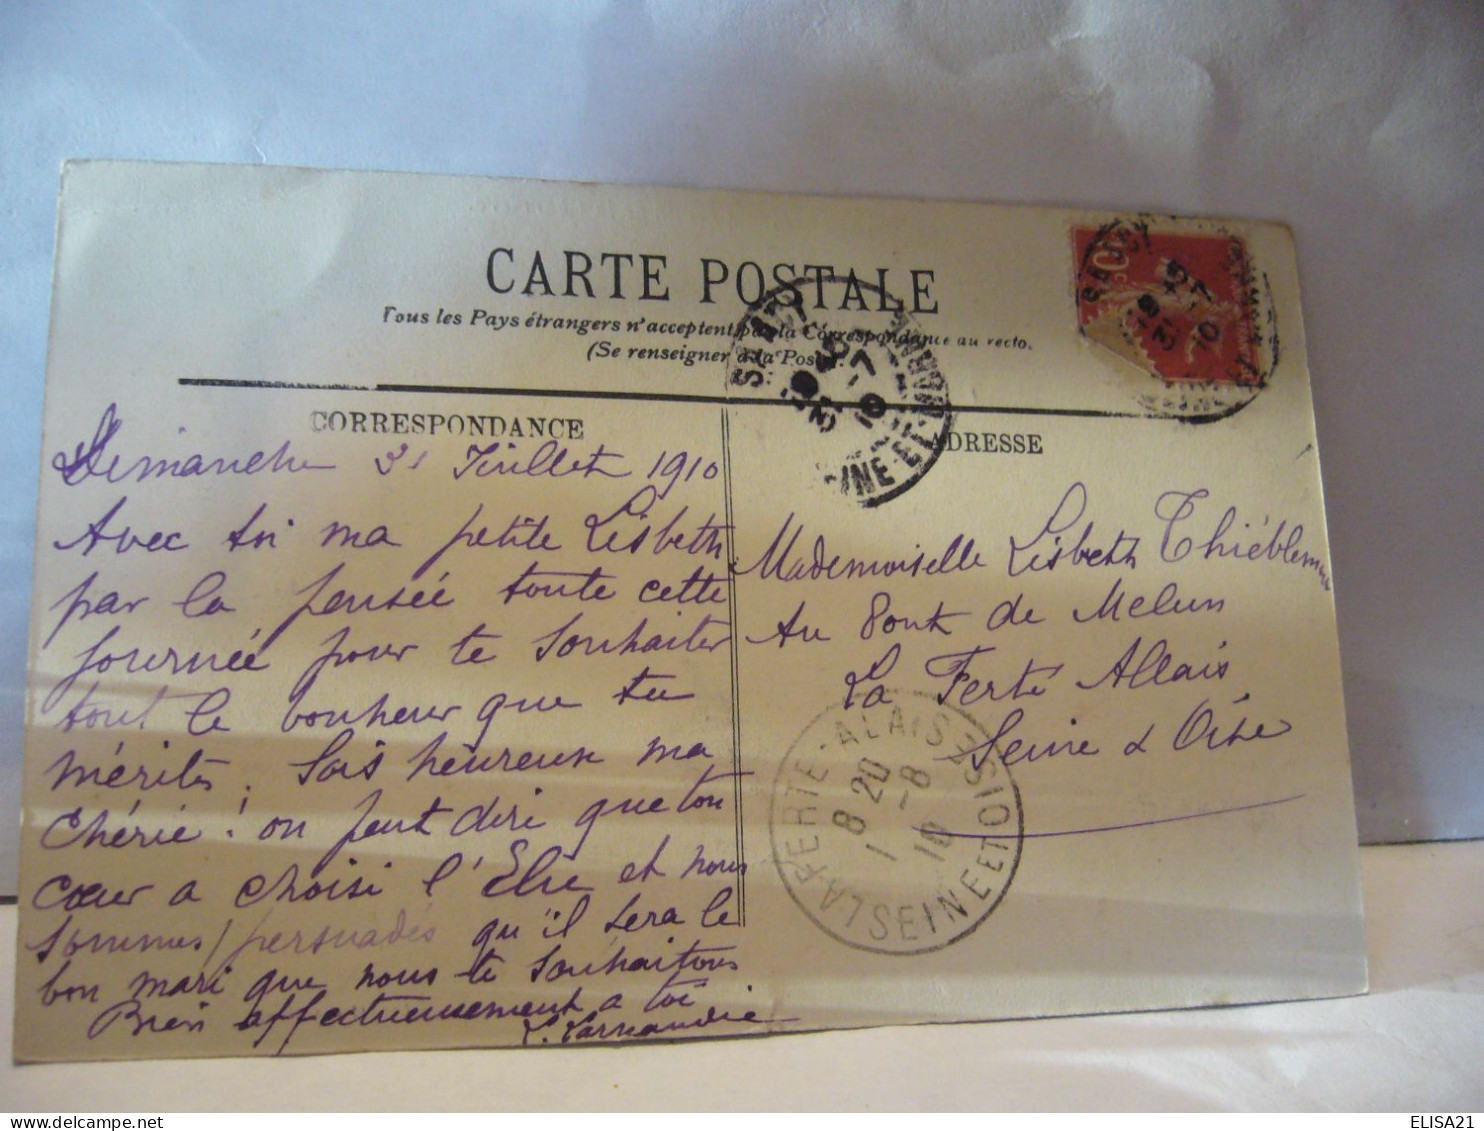 CARTE POSTALE
Tous les Pays étrangers n'acceptent pas la Correspondance au recto.
(Se renseigner à la Poste)
CORRESPONDANCE
Dimanche 31 Juillet 1910
Avec toi ma petite Lisbeth
par la pensée toute cette
journée pour te souhaiter
tout le bonheur que tu
mérites. Sois heureuse ma
Chérie ! on peut dire que ton
cœur a choisi l'Elu et nous
sommes persuadés qu'il sera le
bon mari que nous te souhaitons
Bien affectueusement à toi
ADRESSE
Mademoiselle Lisbeth Thiébleman
Au Pont de Melun
La Ferté Allais
Seine & Oise
LA FERTE-ALAIS
SEINE ET OISE
8 20
1 -8
10
ELISA21